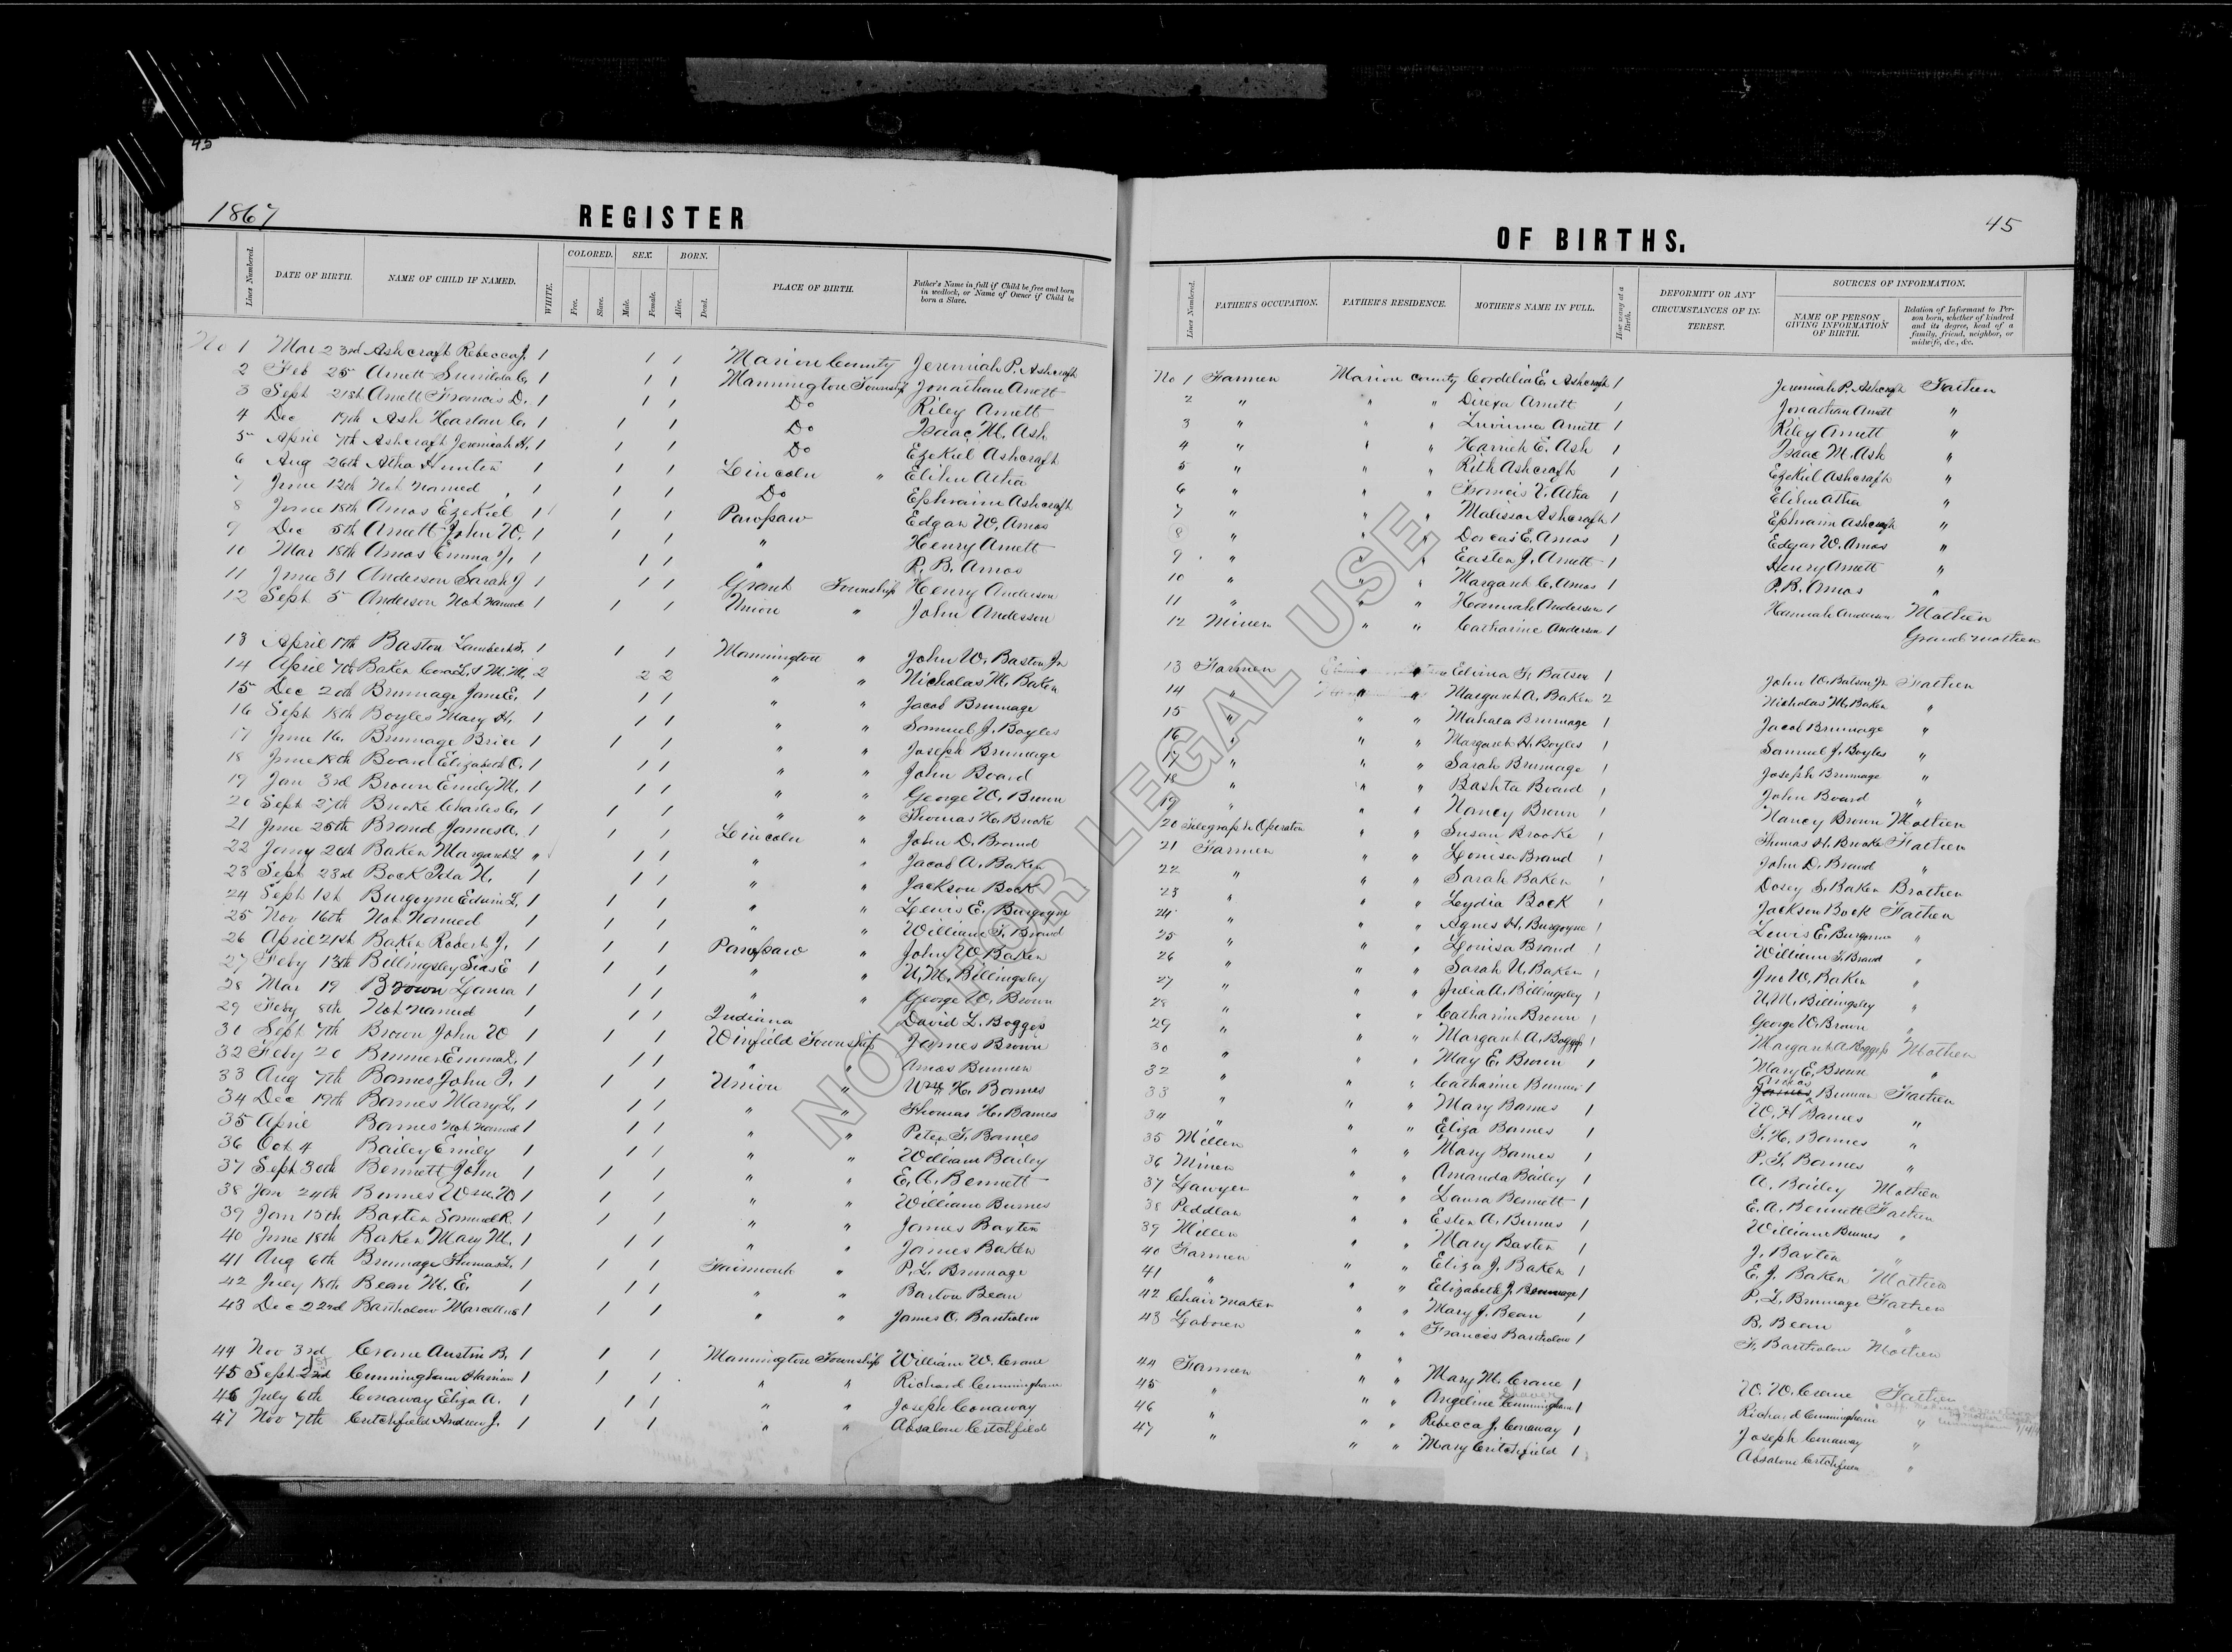 45
1867
REGISTER
Lines Numbered. DATE OF BIRTH. NAME OF CHILD IF NAMED. WHITE. COLORED. Free. Slave. SEX. Male. Female. BORN. Alive. Dead. PLACE OF BIRTH. Father's Name in full if Child be free and born in wedlock, or Name of Owner if Child be born a Slave.
No 1 Mar 23rd Ashcraft Rebecca J. 1 1 1 Marion County Jeremiah P. Ashcraft
2 Feb 25 Arnett C. 1 1 1 Mannington Township Jonathan Arnett
3 Sept 21st Arnett Francis D. 1 1 1 Do Riley Arnett
4 Dec 19th Ash Harlan C. 1 1 1 Do Isaac M. Ash
5 April 7th Ashcraft Jeremiah H. 1 1 1 Do Ezekiel Ashcraft
6 Aug 26th Atha Hunter 1 1 1 Lincoln " Elihu Atha
7 June 12th Not Named 1 1 1 Do Ephraim Ashcraft
8 June 18th Amos Ezekiel 1 1 1 Pawpaw Edgar W. Amos
9 Dec 5th Arnett John W. 1 1 1 " Henry Arnett
10 Mar 18th Amos Emma J. 1 1 1 " P. B. Amos
11 June 31 Anderson Sarah J 1 1 1 Grant Township Henry Anderson
12 Sept 5 Anderson Not Named 1 1 1 Union " John Anderson
13 April 17th Baston Lambert 1 1 1 Mannington " John W. Baston Jr
14 April 7th Baker Cora L. & M. M. 2 2 2 " " Nicholas M. Baker
15 Dec 20th Brumage Jane E. 1 1 1 " " Jacob Brumage
16 Sept 18th Boyles Mary H. 1 1 1 " " Samuel J. Boyles
17 June 16. Brumage Brice 1 1 1 " " Joseph Brumage
18 June 18th Board Elizabeth O. 1 1 1 " " John Board
19 Jan 3rd Brown Emily M. 1 1 1 " " George W. Brown
20 Sept 27th Brooke Charles C. 1 1 1 " " Thomas H. Brooke
21 June 25th Brand James A. 1 1 1 Lincoln " John D. Brand
22 Jany 20th Baker Margaret L " 1 1 " " Jacob A. Baker
23 Sept 23rd Bock Ida N. 1 1 1 " " Jackson Bock
24 Sept 1st Burgoyne Edwin L. 1 1 1 " " Lewis E. Burgoyne
25 Nov 16th Not Named 1 1 1 " " William F. Brand
26 April 21st Baker Robert J. 1 1 1 Pawpaw " John W Baker
27 Feby 13th Billingsley E 1 1 1 " " U. M. Billingsley
28 Mar 19 Brown Laura 1 1 1 " " George W. Brown
29 Feby 8th Not Named 1 1 1 Indiana David L. Boggess
30 Sept 7th Brown John W 1 1 1 Winfield Township James Brown
32 Feby 20 Bunner Emma L. 1 1 1 " " Amos Bunner
33 Aug 7th Barnes John T. 1 1 1 Union " Wm H. Barnes
34 Dec 19th Barnes Mary L. 1 1 1 " " Thomas H. Barnes
35 April Barnes Not Named 1 1 1 " " Peter F. Barnes
36 Oct 4 Bailey Emily 1 1 1 " " William Bailey
37 Sept 30th Bennett John 1 1 1 " " E. A. Bennett
38 Jan 24th Burnes Wm. W 1 1 1 " " William Burnes
39 Jan 15th Baxter Samuel R. 1 1 1 " " James Baxter
40 June 18th Baker Mary M. 1 1 1 " " James Baker
41 Aug 6th Brumage Thomas L. 1 1 1 Fairmont " P. L. Brumage
42 July 18th Bean M. E. 1 1 1 " " Barton Bean
43 Dec 22nd Bartholow Marcellus 1 1 1 " " James O. Bartholow
44 Nov 3rd Crane Austin B. 1 1 1 Mannington Township William W. Crane
45 Sept Cunningham Harrison 1 1 1 " " Richard Cunningham
46 July 6th Conaway Eliza A. 1 1 1 " " Joseph Conaway
47 Nov 7th Critchfield Andrew J. 1 1 1 " " Absalom Critchfield
45
OF BIRTHS.
Lines Numbered. FATHER'S OCCUPATION. FATHER'S RESIDENCE. MOTHER'S NAME IN FULL. How many at a Birth. DEFORMITY OR ANY CIRCUMSTANCES OF INTEREST. SOURCES OF INFORMATION. NAME OF PERSON GIVING INFORMATION OF BIRTH. Relation of Informant to Person born, whether of kindred and its degree, head of a family, friend, neighbor, or midwife, &c., &c.
No 1 Farmer Marion County Cordelia E. Ashcraft 1 Jeremiah P. Ashcraft Father
2 " " " Direxa Arnett 1 Jonathan Arnett "
3 " " " Luvinna Arnett 1 Riley Arnett "
4 " " " Harriet E. Ash 1 Isaac M. Ash "
5 " " " Rith Ashcraft 1 Ezekiel Ashcraft "
6 " " " Francis V. Atha 1 Elihu Atha "
7 " " " Malissa Ashcraft 1 Ephraim Ashcraft "
8 " " " Dorcas E. Amos 1 Edgar W. Amos "
9 " " " Easter J. Arnett 1 Henry Arnett "
10 " " " Margaret C. Amos 1 P. B. Amos "
11 " " " Hannah Anderson 1 Hannah Anderson Mother
12 Miner " " Catharine Anderson 1 Grand mother
13 Farmer " Elvina F. Batson 1 John W. Batson Jr Father
14 " " Margaret A. Baker 2 Nicholas M. Baker "
15 " " " Mahala Brumage 1 Jacob Brumage "
16 " " " Margaret H. Boyles 1 Samuel J. Boyles "
17 " " " Sarah Brumage 1 Joseph Brumage "
18 " " " Bashta Board 1 John Board "
19 " " " Nancy Brown 1 Nancy Brown Mother
20 Telegraph Operator " " Susan Brooke 1 Thomas H. Brooke Father
21 Farmer " " Louisa Brand 1 John D. Brand "
22 " " " Sarah Baker 1 Dosey S. Baker Brother
23 " " " Lydia Bock 1 Jackson Bock Father
24 " " " Agnes H. Burgoyne 1 Lewis E. Burgoyne "
25 " " " Louisa Brand 1 William F. Brand "
26 " " " Sarah U. Baker 1 Jno W. Baker "
27 " " " Julia A. Billingsley 1 U. M. Billingsley "
28 " " " Catharine Brown 1 George W. Brown "
29 " " " Margaret A. Boggess 1 Margaret A Boggess Mother
30 " " " May E. Brown 1 Mary E. Brown "
32 " " " Catharine Bunner 1 Amos Bunner Father
33 " " " Mary Barnes 1 W. H Barnes "
34 " " " Eliza Barnes 1 T. H. Barnes "
35 Miller " " Mary Barnes 1 P. F. Barnes "
36 Miner " " Amanda Bailey 1 A. Bailey Mother
37 Lawyer " " Laura Bennett 1 E. A. Bennett Father
38 Peddlar " " Ester A. Burnes 1 William Burnes "
39 Miller " " Mary Baxter 1 J. Baxter "
40 Farmer " " Eliza J. Baker 1 E. J. Baker Mother
41 " " " Elizabeth J. Brumage 1 P. L. Brumage Father
42 Chair Maker " " Mary J. Bean 1 B. Bean "
43 Laborer " " Frances Bartholow 1 F. Bartholow Mother
44 Farmer " " Mary M. Crane 1 W. W. Crane Father
45 " " " Angeline Cunningham 1 Richard Cunningham "
46 " " " Rebecca J. Conaway 1 Joseph Conaway "
47 " " " Mary Critchfield 1 Absalom Critchfield "
NOT FOR LEGAL USE